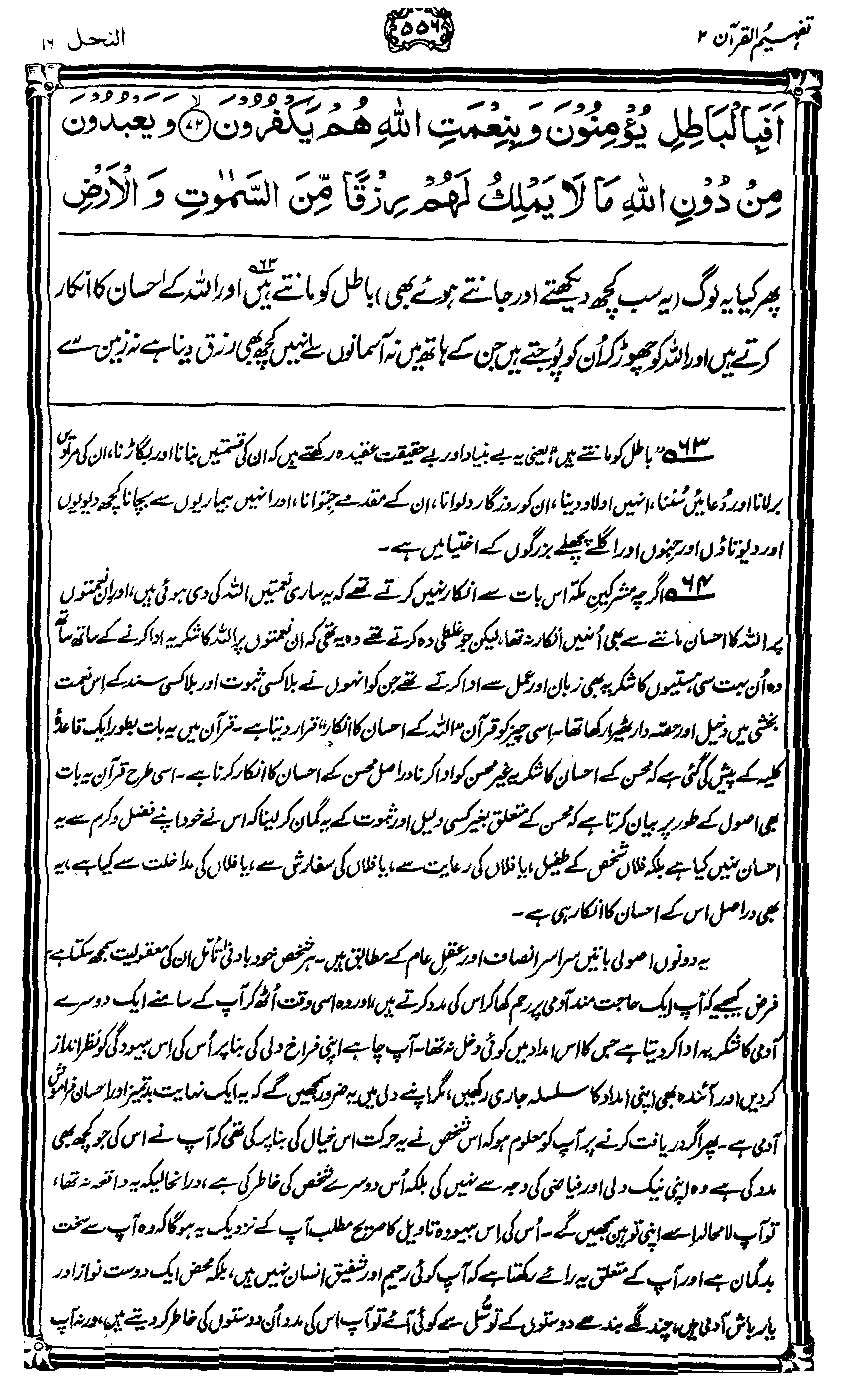 تفہیم القرآن ۲
۵۵۶
النحل ۱۶
اَفَبِالْبَاطِلِ يُؤْمِنُوْنَ وَبِنِعْمَتِ اللّٰهِ هُمْ يَكْفُرُوْنَ ﴿۷۲﴾ وَيَعْبُدُوْنَ
مِنْ دُوْنِ اللّٰهِ مَا لَا يَمْلِكُ لَهُمْ رِزْقًا مِّنَ السَّمٰوٰتِ وَ الْاَرْضِ
پھر کیا یہ لوگ (یہ سب کچھ دیکھتے اور جانتے ہوئے بھی) باطل کو مانتے ہیں ۶۳ اور اللہ کے احسان کا انکار
کرتے ہیں اور اللہ کو چھوڑ کر اُن کو پُوجتے ہیں جن کے ہاتھ میں نہ آسمانوں سے انہیں کچھ بھی رزق دینا ہے نہ زمین سے
۶۳ "باطل کو مانتے ہیں" یعنی یہ بے بنیاد اور بے حقیقت عقیدہ رکھتے ہیں کہ ان کی قسمتیں بنانا اور بگاڑنا، ان کی مرادیں
بر لانا اور دُعائیں سُننا، انہیں اولاد دینا، ان کو روزگار دلوانا، ان کے مقدمے جتوانا، اور انہیں بیماریوں سے بچانا کچھ دیویوں
اور دیوتاؤں اور جنوں اور اگلے پچھلے بزرگوں کے اختیار میں ہے۔
۶۴ اگرچہ مشرکینِ مکہ اس بات سے انکار نہیں کرتے تھے کہ یہ ساری نعمتیں اللہ کی دی ہوئی ہیں، اور ان نعمتوں
پر اللہ کا احسان ماننے سے بھی اُنہیں انکار نہ تھا، لیکن جو غلطی وہ کرتے تھے وہ یہ تھی کہ ان نعمتوں پر اللہ کا شکریہ ادا کرنے کے ساتھ ساتھ
وہ اُن بہت سی ہستیوں کا شکریہ بھی زبان اور عمل سے ادا کرتے تھے جن کو انہوں نے بلا کسی ثبوت اور بلا کسی سند کے اِس نعمت
بخشی میں دخیل اور حصہ دار ٹھیرا رکھا تھا۔ اِسی چیز کو قرآن "اللہ کے احسان کا انکار" قرار دیتا ہے۔ قرآن میں یہ بات بطور ایک قاعدۂ
کلیہ کے پیش کی گئی ہے کہ محسن کے احسان کا شکریہ غیر محسن کو ادا کرنا دراصل محسن کے احسان کا انکار کرنا ہے۔ اسی طرح قرآن یہ بات
بھی اصول کے طور پر بیان کرتا ہے کہ محسن کے متعلق بغیر کسی دلیل اور ثبوت کے یہ گمان کر لینا کہ اس نے خود اپنے فضل و کرم سے یہ
احسان نہیں کیا ہے بلکہ فلاں شخص کے طفیل، یا فلاں کی رعایت سے، یا فلاں کی سفارش سے، یا فلاں کی مداخلت سے کیا ہے، یہ
بھی دراصل اس کے احسان کا انکار ہی ہے۔
یہ دونوں اصولی باتیں سراسر انصاف اور عقلِ عام کے مطابق ہیں۔ ہر شخص خود بادنیٰ تامل ان کی معقولیت سمجھ سکتا ہے
فرض کیجیے کہ آپ ایک حاجت مند آدمی پر رحم کھا کر اس کی مدد کرتے ہیں، اور وہ اسی وقت اُٹھ کر آپ کے سامنے ایک دوسرے
آدمی کا شکریہ ادا کر دیتا ہے جس کا اس امداد میں کوئی دخل نہ تھا۔ آپ چاہے اپنی فراخ دلی کی بنا پر اُس کی اِس بیہودگی کو نظر انداز
کر دیں اور آئندہ بھی اپنی امداد کا سلسلہ جاری رکھیں، مگر اپنے دل میں یہ ضرور سمجھیں گے کہ یہ ایک نہایت بدتمیز اور احسان فراموش
آدمی ہے۔ پھر اگر دریافت کرنے پر آپ کو معلوم ہو کہ اس شخص نے یہ حرکت اس خیال کی بنا پر کی تھی کہ آپ نے اس کی جو کچھ بھی
مدد کی ہے وہ اپنی نیک دلی اور فیاضی کی وجہ سے نہیں کی بلکہ اُس دوسرے شخص کی خاطر کی ہے، درانحالیکہ یہ واقعہ نہ تھا،
تو آپ لامحالہ اسے اپنی توہین سمجھیں گے۔ اُس کی اِس بیہودہ تاویل کا صریح مطلب آپ کے نزدیک یہ ہوگا کہ وہ آپ سے سخت
بدگمان ہے اور آپ کے متعلق یہ رائے رکھتا ہے کہ آپ کوئی رحیم اور شفیق انسان نہیں ہیں، بلکہ محض ایک دوست نواز اور
یار باش آدمی ہیں، چند لگے بندھے دوستوں کے توسُّل سے کوئی آئے تو آپ اس کی مدد اُن دوستوں کی خاطر کر دیتے ہیں، ورنہ آپ